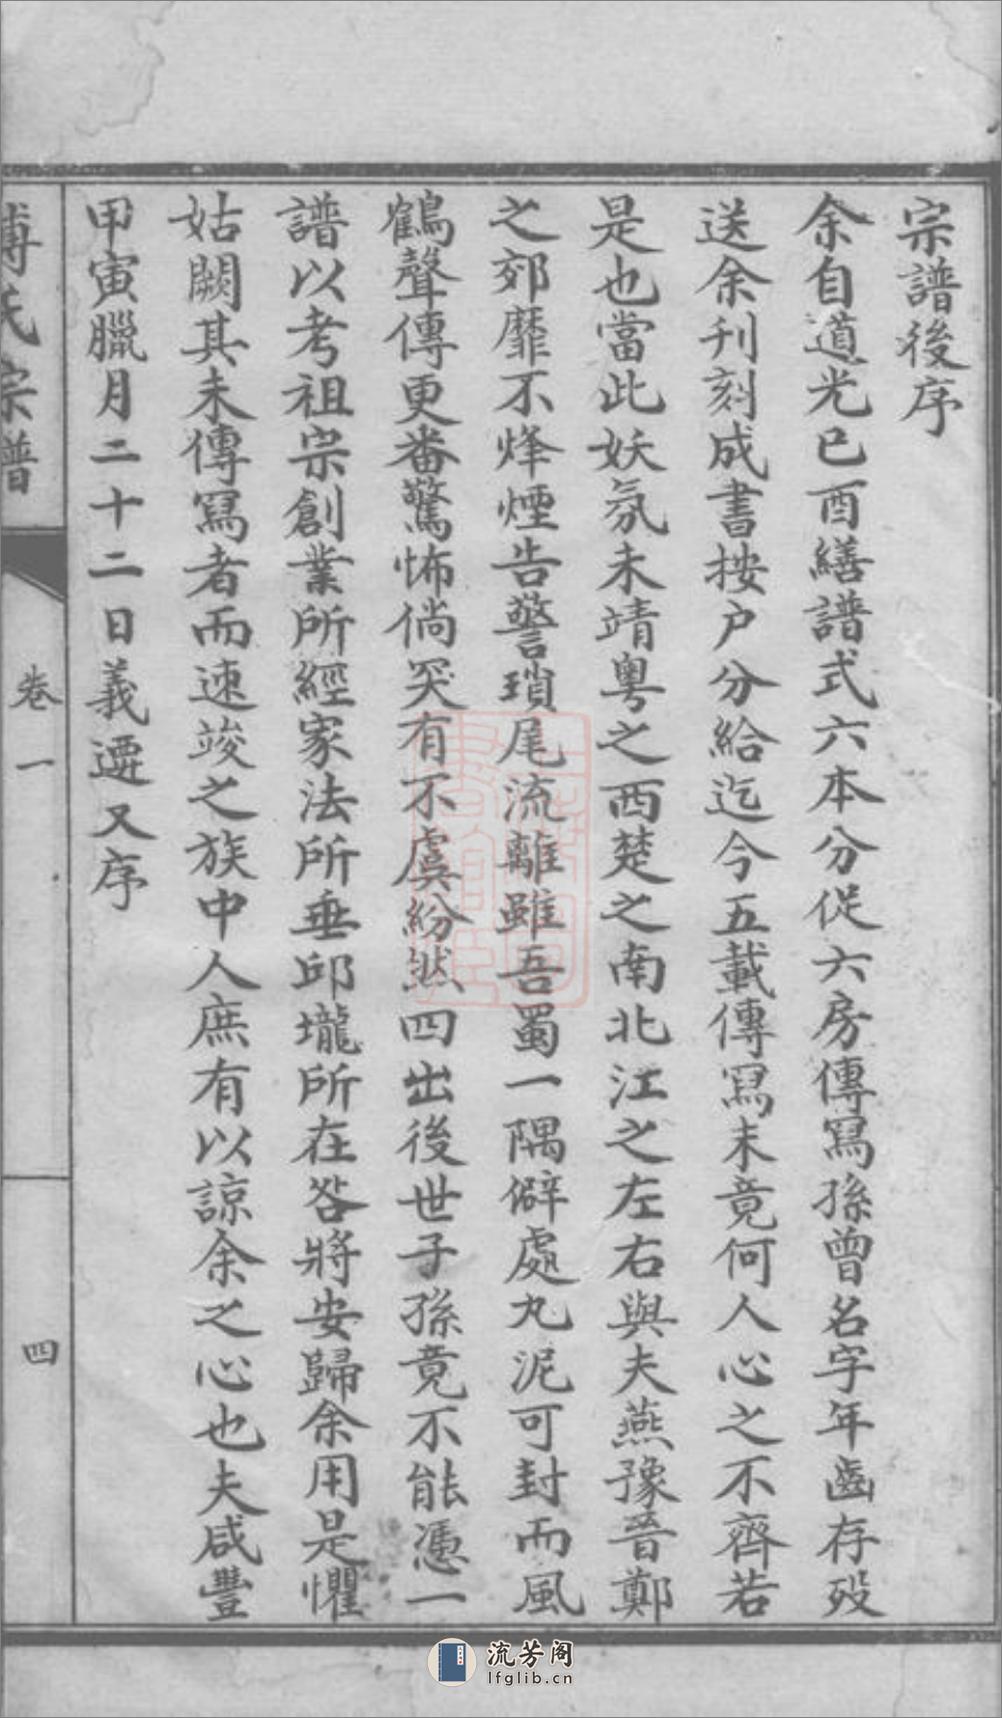 宗譜後序
余自道光己酉繕譜式六本分從六房傳寫孫曾名字年齒存歿
送余刊刻成書按戶分給迄今五載傳寫未竟何人心之不齊若
是也當此妖氛未靖粵之西楚之南北江之左右與夫燕豫晉鄭
之郊靡不烽煙告警瑣尾流離雖吾蜀一隅僻處丸泥可封而風
鶴聲傳更番驚怖倘突有不虞紛然四出後世子孫竟不能憑一
譜以考祖宗創業所經家法所垂邱壠所在咎將安歸余用是懼
姑闕其未傳寫者而速竣之族中人庶有以諒余之心也夫咸豐
甲寅臘月二十二日義遷又序
傅氏宗譜
卷一
四
流芳阁
lfglib.cn